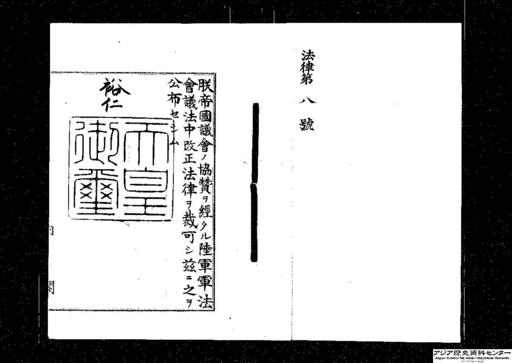 法律第八號
朕帝國議會ノ協贊ヲ經タル陸軍軍法
會議法中改正法律ヲ裁可シ茲ニ之ヲ
公布セシム
裕仁
天皇
御璽
内閣
アジア歴史資料センター
Japan Center for Asian Historical Records